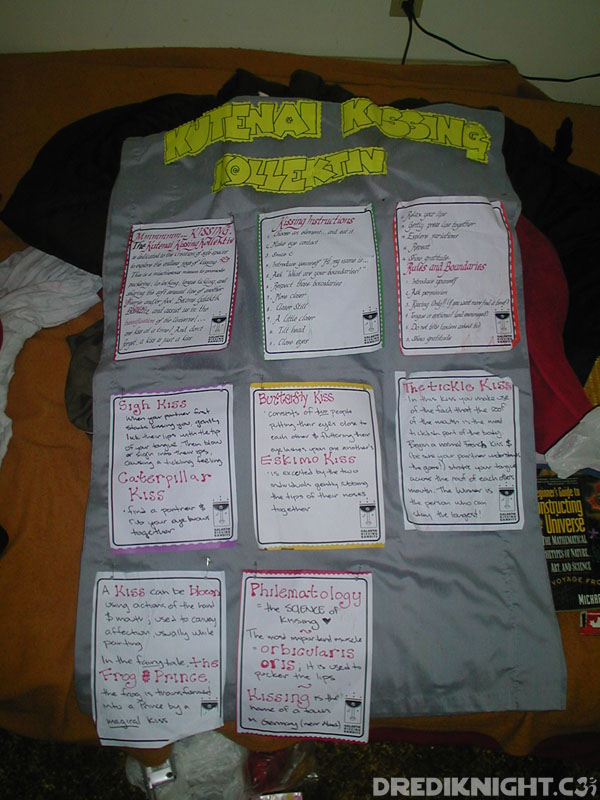 KUTENAI KISSING
KOLLEKTIV
Mmmmmm... KISSING.
The Kutenai Kissing Kollektiv
is dedicated to the creation of safe spaces
to explore the endless joys of kissing.
forget, a kiss is just a kiss
Kissing Instructions
Choose an element... and eat it.
Make eye contact
Smile
Introduce yourself "Hi my name is...
Ask "What are your boundaries?"
Respect those boundaries
Move closer
Closer Still
A little closer
Tilt head
Close eyes
Relax your lips
Gently press lips together
Explore variations
Repeat
Show gratitude
Rules and Boundaries
Introduce yourself
Ask permission
Kissing Only! (if you want more find a tent)
Tongue is optional (and encouraged!)
Do not bite (unless asked to)
Show gratitude
Sigh Kiss
When your partner first
starts kissing you, gently
lick their lips with the tip
of your tongue. Then blow
or sigh into their lips,
causing a tickling feeling
Caterpillar
Kiss
- find a partner &
rub your eye brows
together
Butterfly Kiss
Consists of two people
putting their eyes close to
each other & fluttering their
eyelashes upon one another's
Eskimo Kiss
- is excited by the two
individuals gently rubbing
the tips of their noses
together
The tickle Kiss
In this kiss you make use
of the fact that the roof
of the mouth is the most
ticklish part of the body.
Began a normal French Kiss &
(be sure your partner understands
the game!) stroke your tongue
across the roof of each others
mouth. The Winner is
the person who can
stay the longest!
A Kiss can be blown
using actions of the hand
& mouth; used to convey
affection usually while
parting
In the fairy tale, the
Frog & Prince,
the frog is transformed
into a Prince by a
magical kiss
Philematology
= the SCIENCE of
Kissing ♥
~
The most important muscle
= orbicularis
oris; it is used to
pucker the lips
~
Kissing is the
name of a town
in Germany (near
Beginner's Guide to
Constructing
Universe
THE MATHEMATICAL
ARCHETYPES OF NATURE,
ART, AND SCIENCE
A VOYAGE FROM
MICHAEL
DREDIKNIGHT.C